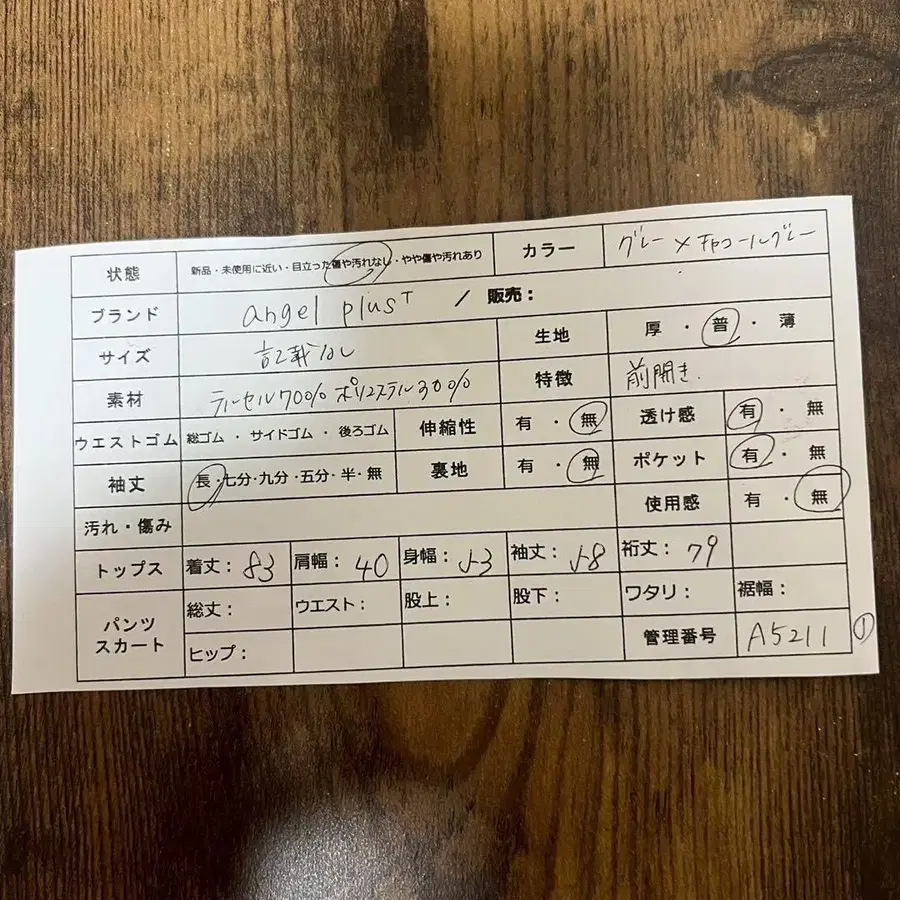 状態 新品・未使用に近い・目立った傷や汚れなし・やや傷や汚れあり カラー グレー×チャコールグレー
ブランド angel plus T / 販売：
サイズ 記載なし 生地 厚・普・薄
素材 テンセル70% ポリエステル30% 特徴 前開き.
ウエストゴム 総ゴム・サイドゴム・後ろゴム 伸縮性 有・無 透け感 有・無
袖丈 長・七分・九分・五分・半・無 裏地 有・無 ポケット 有・無
汚れ・傷み 使用感 有・無
トップス 着丈：83 肩幅：40 身幅：53 袖丈：58 裄丈：79
パンツ スカート 総丈： ウエスト： 股上： 股下： ワタリ： 裾幅：
ヒップ： 管理番号 A5211 ①